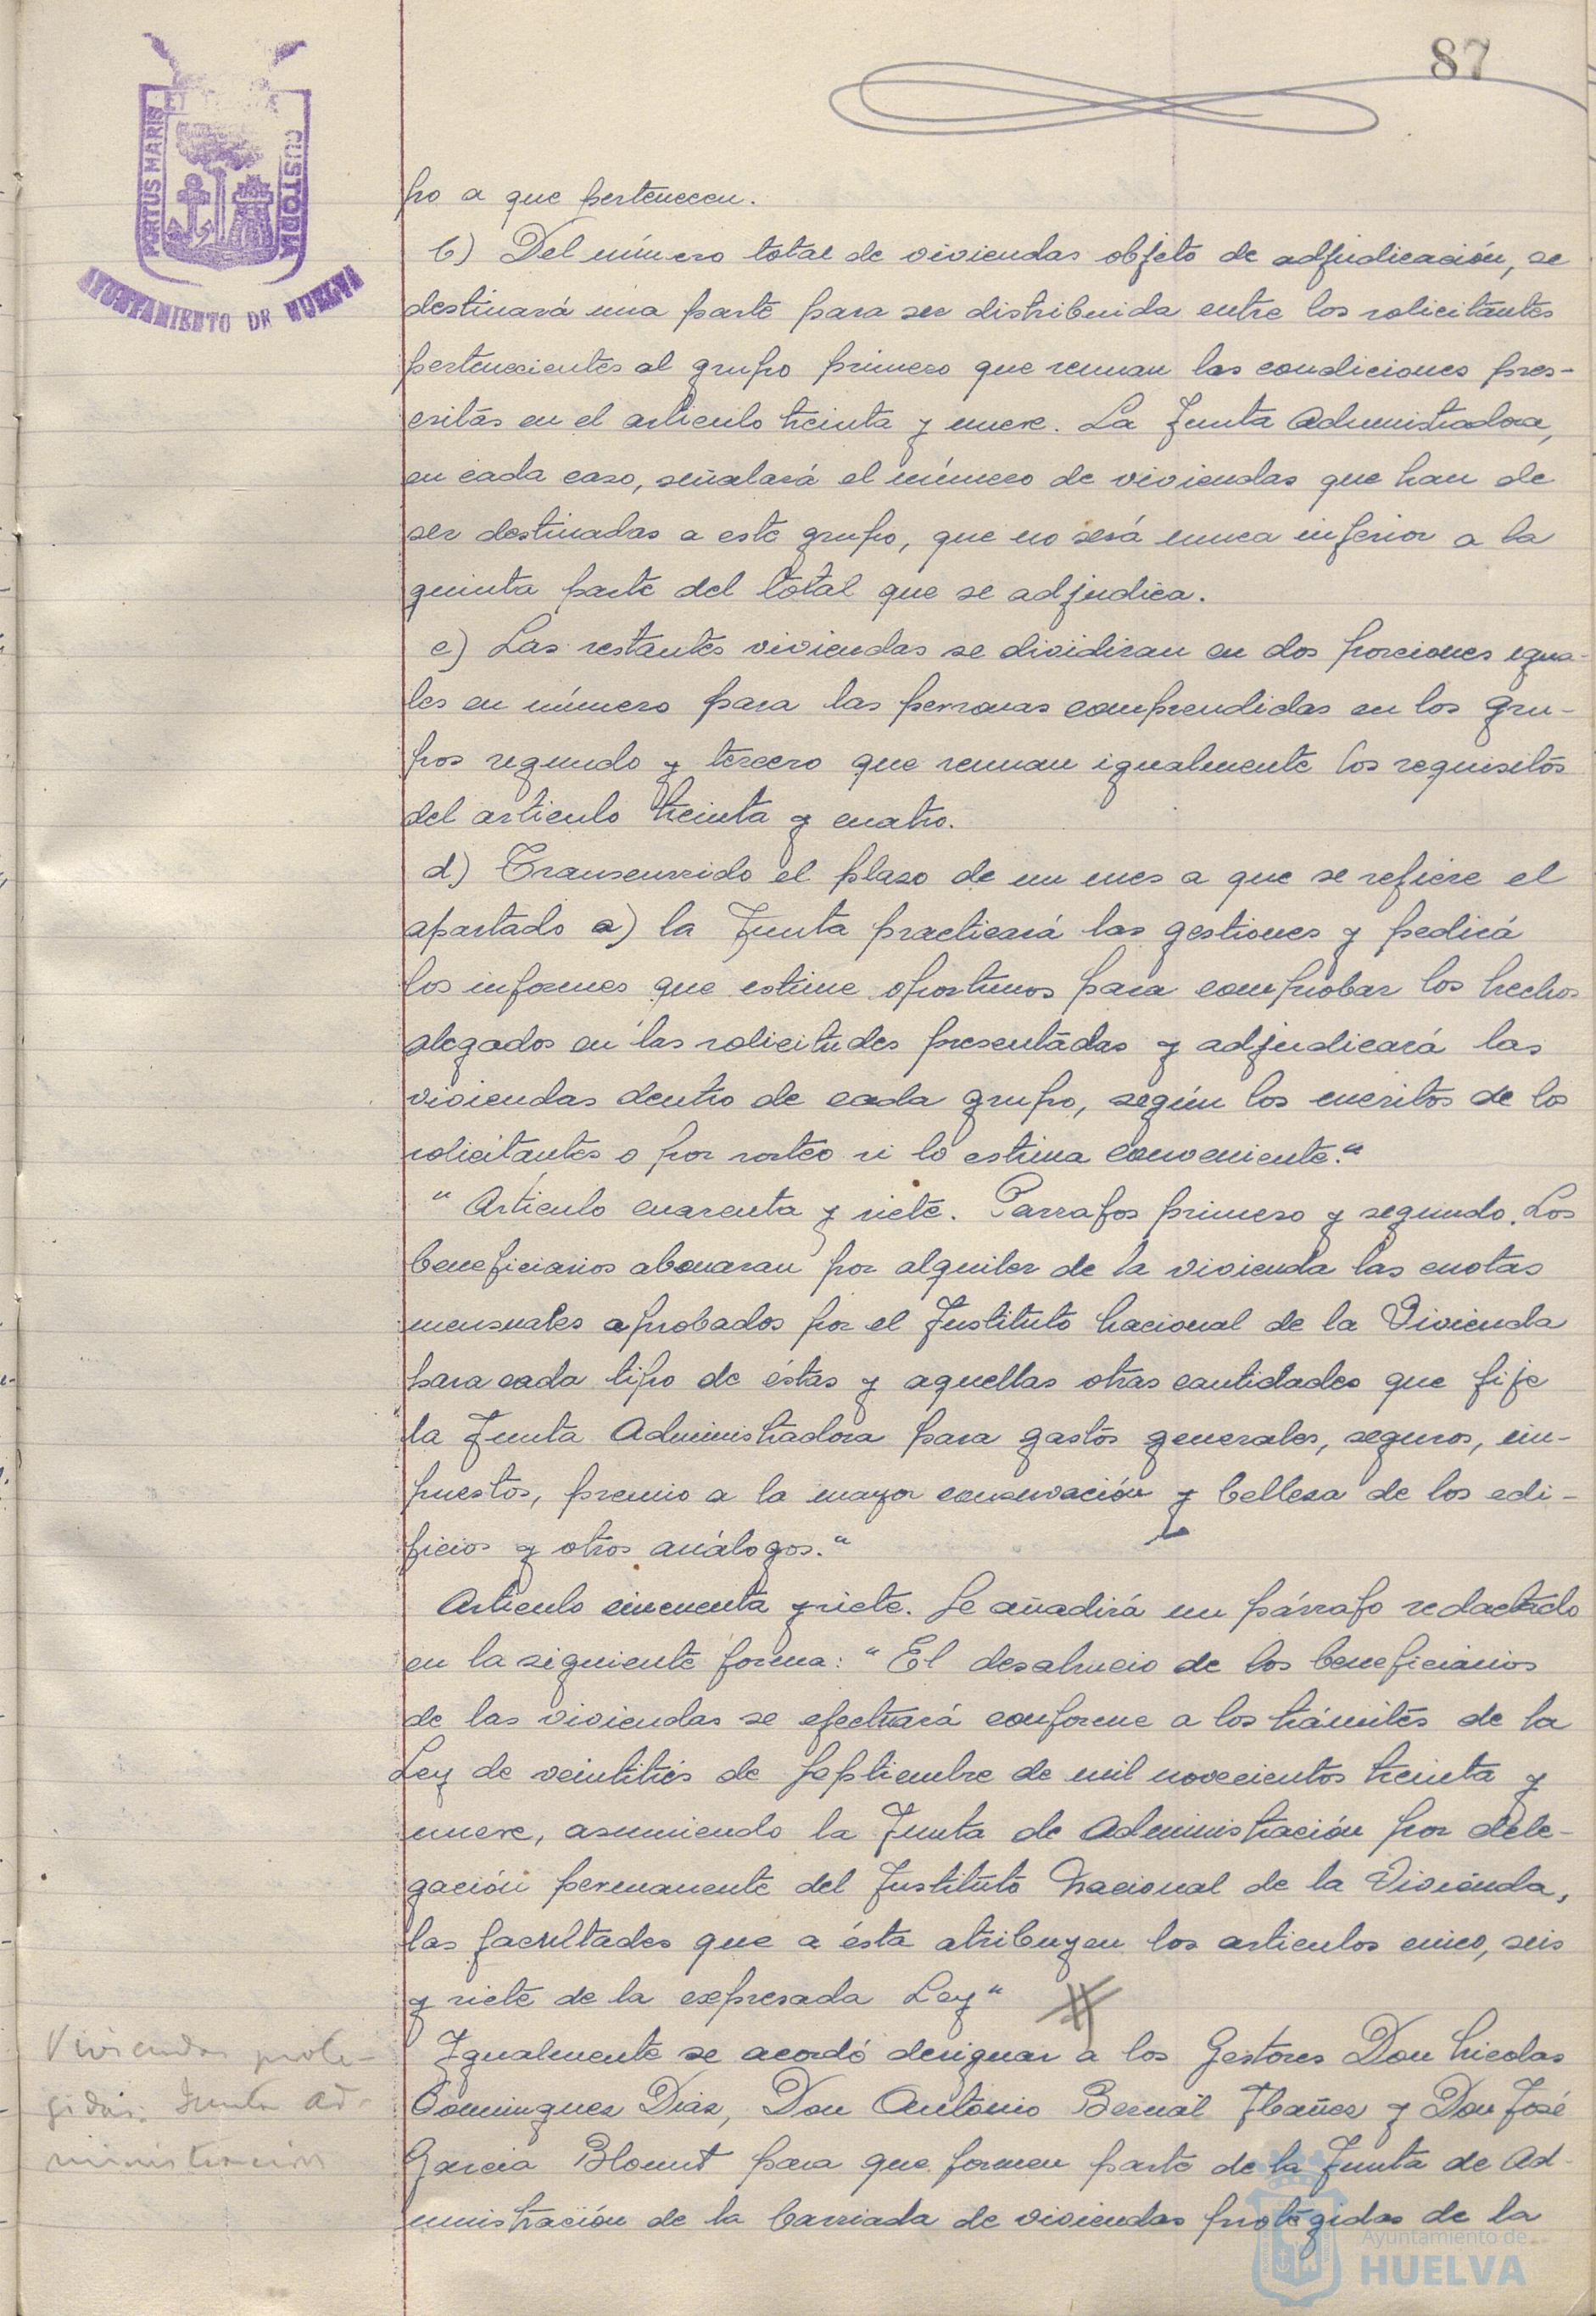 87
PORTUS MARIS
ET TERRAE
CUSTODIA
AYUNTAMIENTO DE HUELVA
po a que pertenecen.
b) Del número total de viviendas objeto de adjudicación, se
destinará una parte para ser distribuida entre los solicitantes
pertenecientes al grupo primero que reunan las condiciones pres-
critas en el articulo treinta y nueve. La Junta Administradora,
en cada caso, señalará el número de viviendas que han de
ser destinadas a este grupo, que no será nunca inferior a la
quinta parte del total que se adjudica.
c) Las restantes viviendas se dividiran en dos porciones igua-
les en número para las personas comprendidas en los gru-
pos segundo y tercero que reunan igualmente los requisitos
del articulo treinta y cuatro.
d) Transcurrido el plazo de un mes a que se refiere el
apartado a) la Junta practicará las gestiones y pedirá
los informes que estime oportunos para comprobar los hechos
alegados en las solicitudes presentadas y adjudicará las
viviendas dentro de cada grupo, según los meritos de los
solicitantes o por sorteo si lo estima conveniente."
" Articulo cuarenta y siete. Parrafos primero y segundo. Los
beneficiarios abonaran por alquiler de la vivienda las cuotas
mensuales aprobados por el Instituto Nacional de la Vivienda
para cada tipo de éstas y aquellas otras cantidades que fije
la Junta Administradora para gastos generales, seguros, im-
puestos, premio a la mayor conservación y belleza de los edi-
ficios y otros análogos."
Articulo cincuenta y siete. Se añadirá un párrafo redactado
en la siguiente forma: " El desahucio de los beneficiarios
de las viviendas se efectuará conforme a los trámites de la
Ley de veintitrés de Septiembre de mil novecientos treinta y
nueve, asumiendo la Junta de Administración por dele-
gación permanente del Instituto Nacional de la Vivienda,
las facultades que a ésta atribuyen los articulos cinco, seis
y siete de la expresada Ley"
Viviendas prote-
gidas. Junta Ad-
ministración
Igualmente se acordó designar a los Gestores Don Nicolas
Dominguez Diaz, Don Antonio Bernal Ibañez y Don José
Garcia Blount para que formen parte de la Junta de Ad-
ministración de la barriada de viviendas protegidas de la
Ayuntamiento de
HUELVA